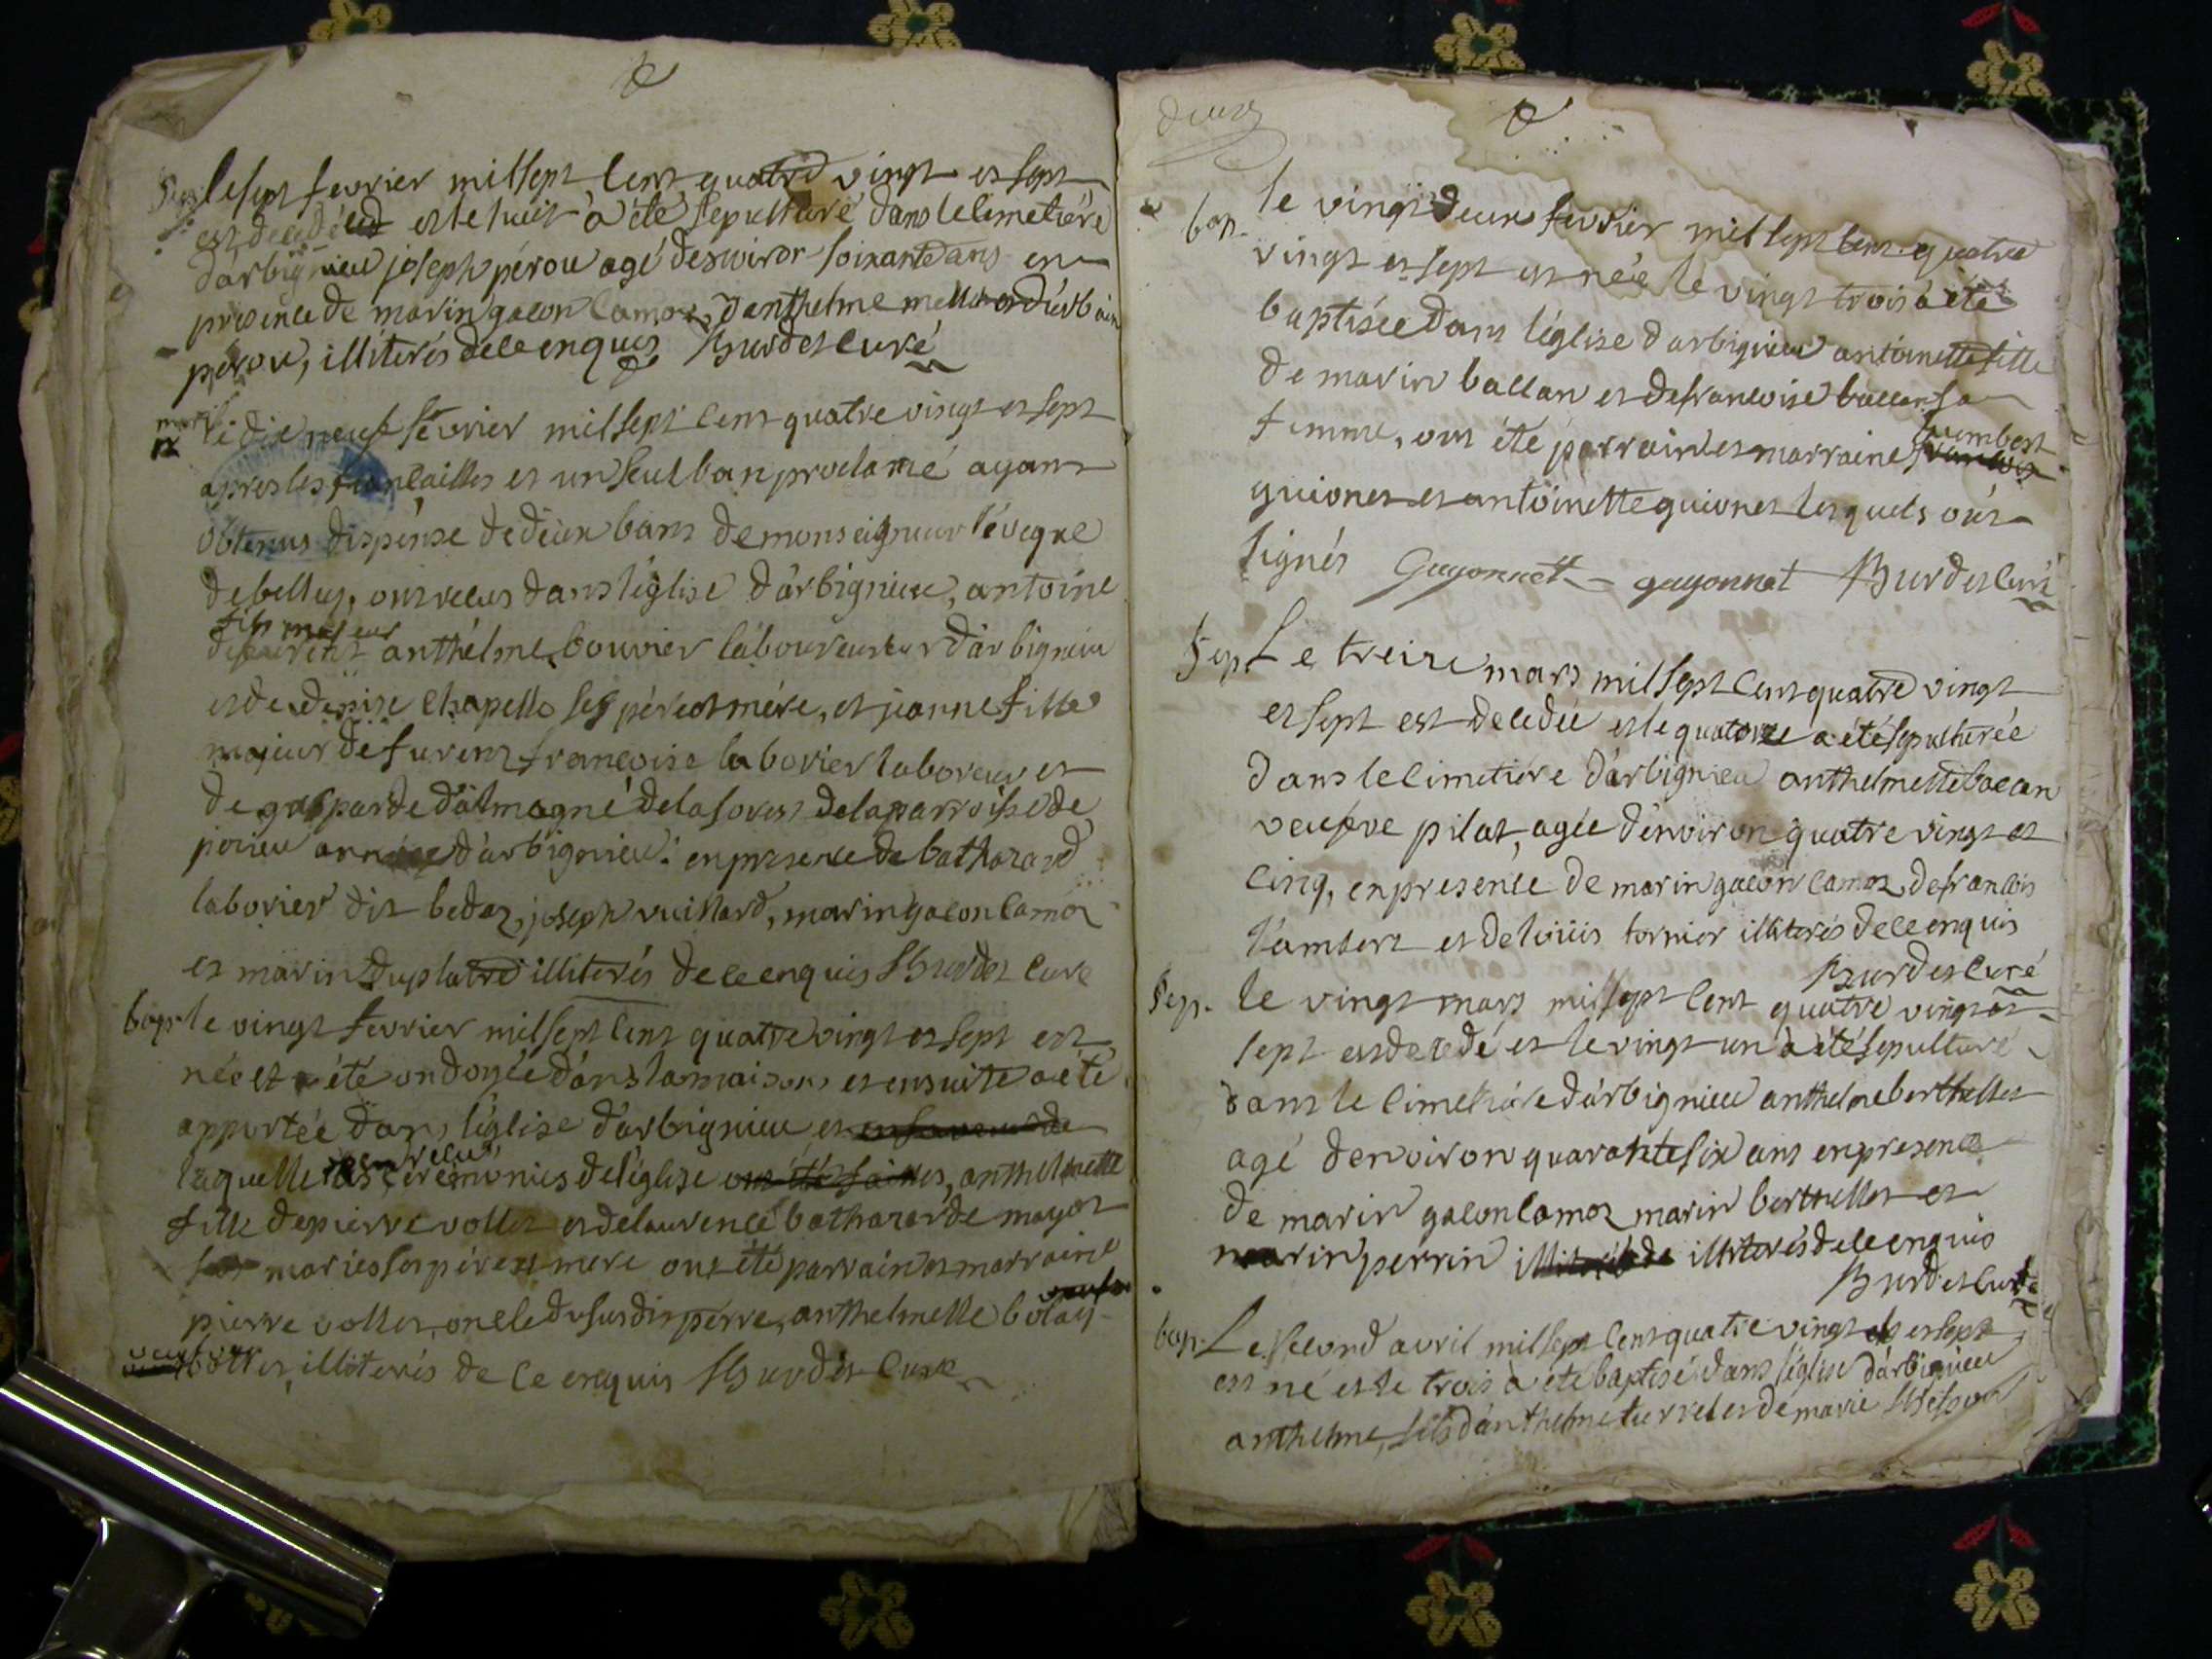 Sep. le sept fevrier mil sept cent quatre vingt et sept
est decedé et le huit a été sepulturé dans le cimetiére
d'arbignieu joseph pérou agé d'environ soixante ans en
presence de marin gacon camoz, d'anthelme et d'urbain
pérou, illiterés de ce enquis Burdet curé
mari
le dix neuf février mil sept cent quatre vingt et sept
apres les fiançailles et un seul ban proclamé ayant
obtenus dispense de deux bans de monseigneur l'évêque
de belley, ont recus dans l'église d'arbignieu, antoine
fils majeur
anthélme bouvier laboureur d'arbignieu
et de denise chapelle ses pére et mére, et jeanne fille
majeur de furent francoise laborier laboreur et
de gasparde d'almagné de la forest de la parroisse de
d'arbignieu: en presence de bathazard
laborier dit bedaz, joseph vuillard, marin gacon camoz
et marin duplatre illiterés de ce enquis Burdet cure
bap. le vingt fevrier mil sept cent quatre vingt et sept est
née et a été ondoyée dans la maison et ensuite a été
apportée dans l'église d'arbignieu et
a recu
laquelle les cérémonies de l'église ont été faites, anthelmette
fille de pierre vollet et de laurence bathazarde mayot
mariés ses pére et mere ont été parrain et marraine
pierre vollet, oncle du susdit pérre, anthelmette bolay
veufve
vollet, illiterés de ce enquis Burdet cure
deux
bap. le vingt deux fevrier mil sept cent quatre
vingt et sept est née le vingt trois a été
baptisée dans l'église d'arbignieu antoinette fille
de marin ballan et de francoise ballan sa
femme, ont été parrain et marraine
humbert
guionet et antoinette guionet lesquels ont
signés Guyonnet guyonnat Burdet curé
Sep. Le treize mars mil sept cent quatre vingt
et sept est decedée et le quatorze a été sepulturée
dans le cimetiére d'arbignieu anthelmette bacan
veufve pilat, agée d'environ quatre vingt et
cinq, en presence de marin gacon camoz, de francois
lambert et de loüis tornier illiterés de ce enquis
Burdet curé
Sep. le vingt mars mil sept cent quatre vingt et
sept est decedé et le vingt un a été sepulturé
dans le cimetiére d'arbignieu anthelme berthellet
agé d'environ quarante six ans en presence
de marin gacon camoz marin berthellet et
marin perrin illiterés de illiterés de ce enquis
Burdet curé
bap. Le second avril mil sept cent quatre vingt et sept
est né et le trois a été baptisé dans l'église d'arbignieu
anthelme, fils d'anthelme et de marie